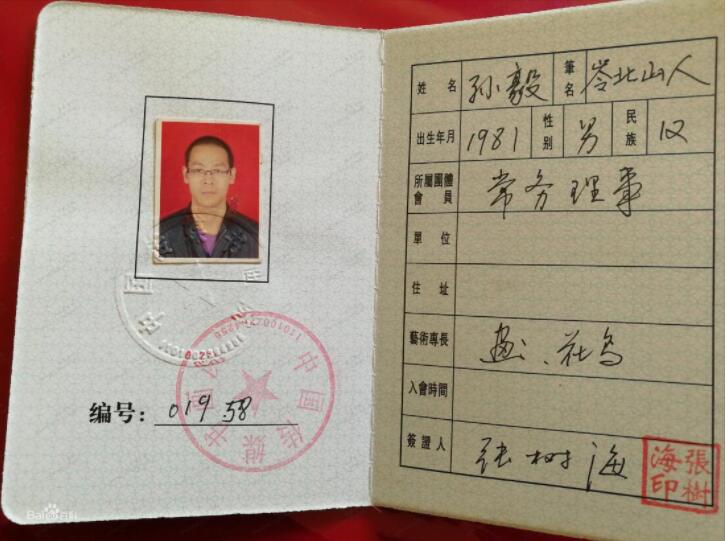 编号: 01958
Baidu百科
姓名 孙毅 筆名 岺北山人
出生年月 1981 性别 男 民族 汉
所屬團體會員 常务理事
單位
住址
藝術專長 画、花鸟
入會時間
簽證人 张树海
張樹海印